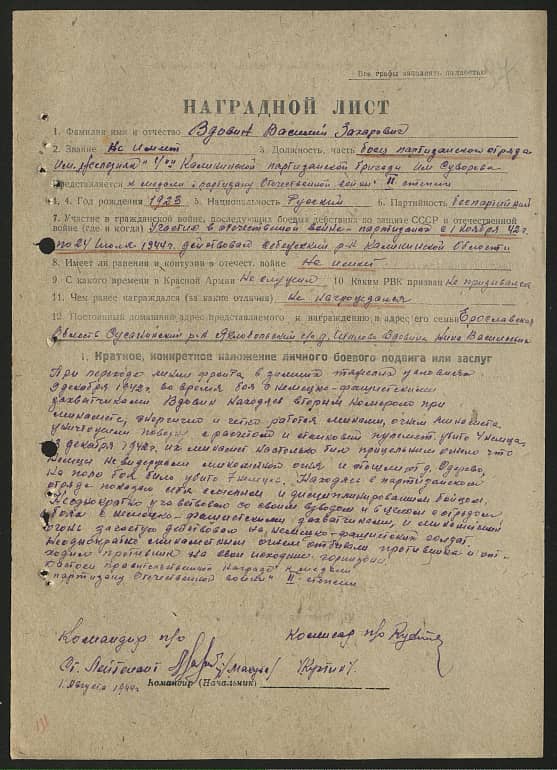 Все графы заполнять полностью
НАГРАДНОЙ ЛИСТ
1. Фамилия имя и отчество Вдовин Василий Захарович
2. Звание Не имеет 3. Должность, часть боец партизанского отряда
Калининской партизанской бригады им Суворова
Представляется к медали „партизану Отечественной войны" II степени
4. Год рождения 1923 5. Национальность Русский 6. Партийность беспартийный
7. Участие в гражданской войне, последующих боевых действиях по защите СССР и отечественной
войне (где и когда) Участие в отечественной войне – партизаном с 1 ноября 42 г.
по 24 июля 1944 г. действовал Себежский р-н Калининской области
8. Имеет ли ранения и контузии в отечест. войне Не имеет
9. С какого времени в Красной Армии Не служил 10 Каким РВК призван не призывался
11. Чем ранее награждался (за какие отличия) Не награждался
12. Постоянный домашний адрес представляемого к награждению и адрес его семьи Ярославская
область р-н д. Вдовина Василевна
1. Краткое, конкретное изложение личного боевого подвига или заслуг
При переходе линии фронта в зимних тяжелых условиях
9 декабря 1942 г. во время боя с немецко-фашистскими
захватчиками Вдовин находясь вторым номером при
миномете, энергично и четко работая минами, огнем миномета
уничтожили повозку с расчетом и станковый пулемет. убито 4 немца,
декабря 1942 г. их миномет настолько был прицельным огнем что
немцы не выдержали минометного огня и отошли от д.
На поле боя было убито 7 немцев. Находясь в партизанском
отряде показал себя смелым и дисциплинированным бойцом.
Неоднократно участвовал со своим взводом и в целом с отрядом
боях с немецко-фашистскими захватчиками, и минометный
огонь зачастую действовал на немецко-фашистских солдат
неоднократно минометным огнем отбивали противника и от-
ходил противник на свои исходные
Достоин правительственной награды к медали
„партизану Отечественной войны" II степени
Командир п/о Комиссар п/о
Ст. Лейтенант
1 августа 1944 г. Командир (Начальник)